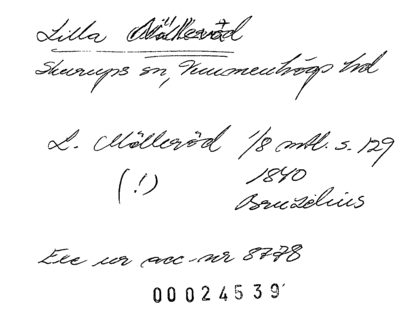 Lilla Mölleröd
Skurups sn, Vemmenhögs hd
L. Mölleröd 1/8 mtl. s. 129
(!) 1840
Bruzelius
Exc ur acc-nr 8778
00024539